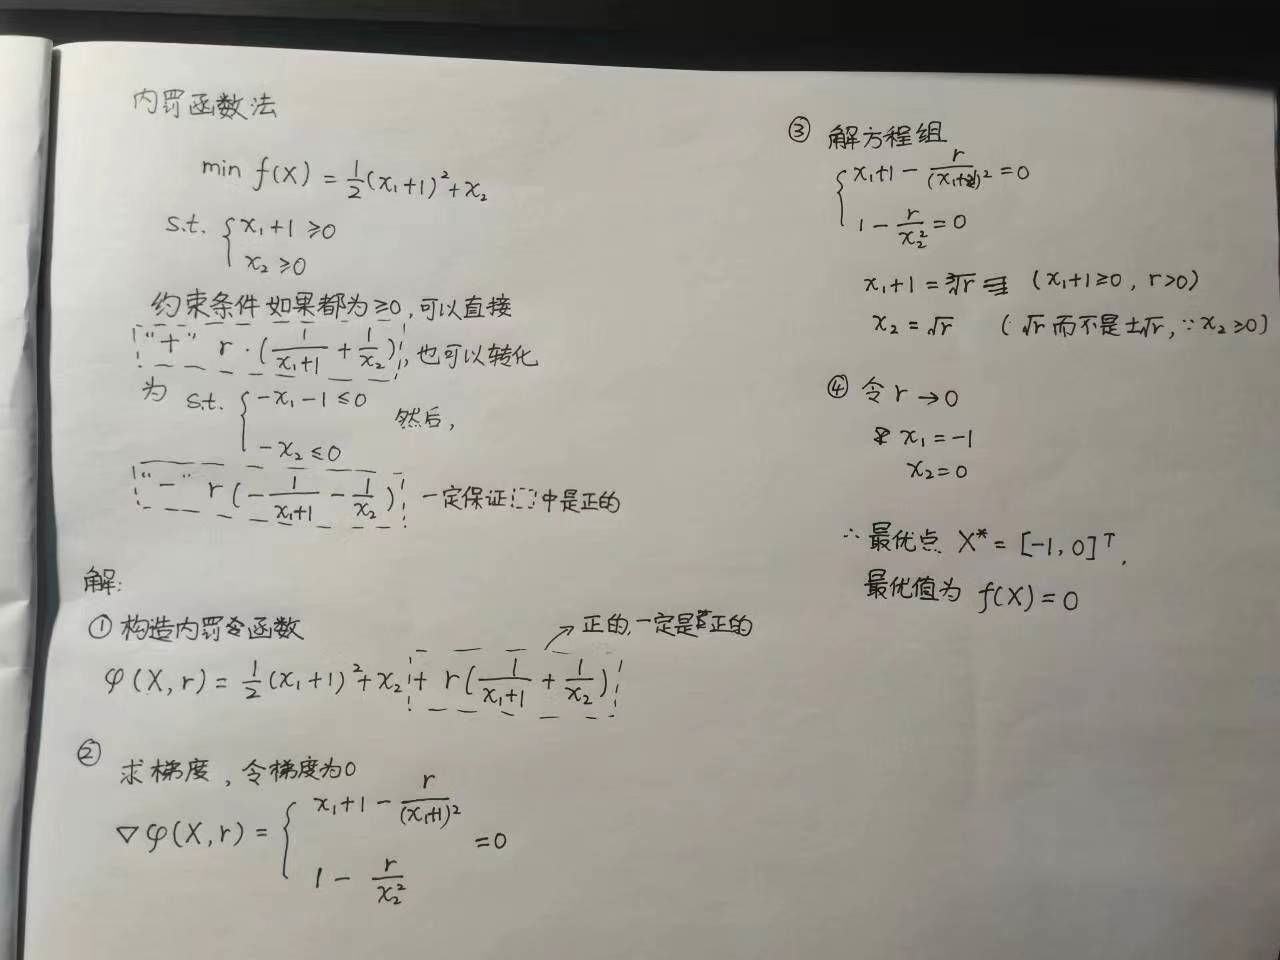 内罚函数法
min f(X) = 1/2 (x₁+1)² + x₂
s.t. { x₁+1 ≥0
x₂ ≥0
约束条件如果都为≥0,可以直接
"+" r·(1/(x₁+1) + 1/x₂),也可以转化
为 s.t. { -x₁-1 ≤0 然后,
-x₂ ≤0
"-" r(-1/(x₁+1) - 1/x₂) 一定保证⬚中是正的
解:
①构造内罚函数
→正的,一定是正的
φ(X,r) = 1/2 (x₁+1)² + x₂ + r(1/(x₁+1) + 1/x₂)
② 求梯度,令梯度为0
▽φ(X,r) = { x₁+1 - r/(x₁+1)²
1 - r/x₂² =0
③ 解方程组
{ x₁+1 - r/(x₁+1)² =0
1 - r/x₂² =0
x₁+1 = ∛r (x₁+1≥0, r>0)
x₂ = √r (√r而不是±√r,∵x₂≥0)
④ 令 r→0
x₁ = -1
x₂ = 0
∴最优点 X* = [-1, 0]ᵀ.
最优值为 f(X) = 0